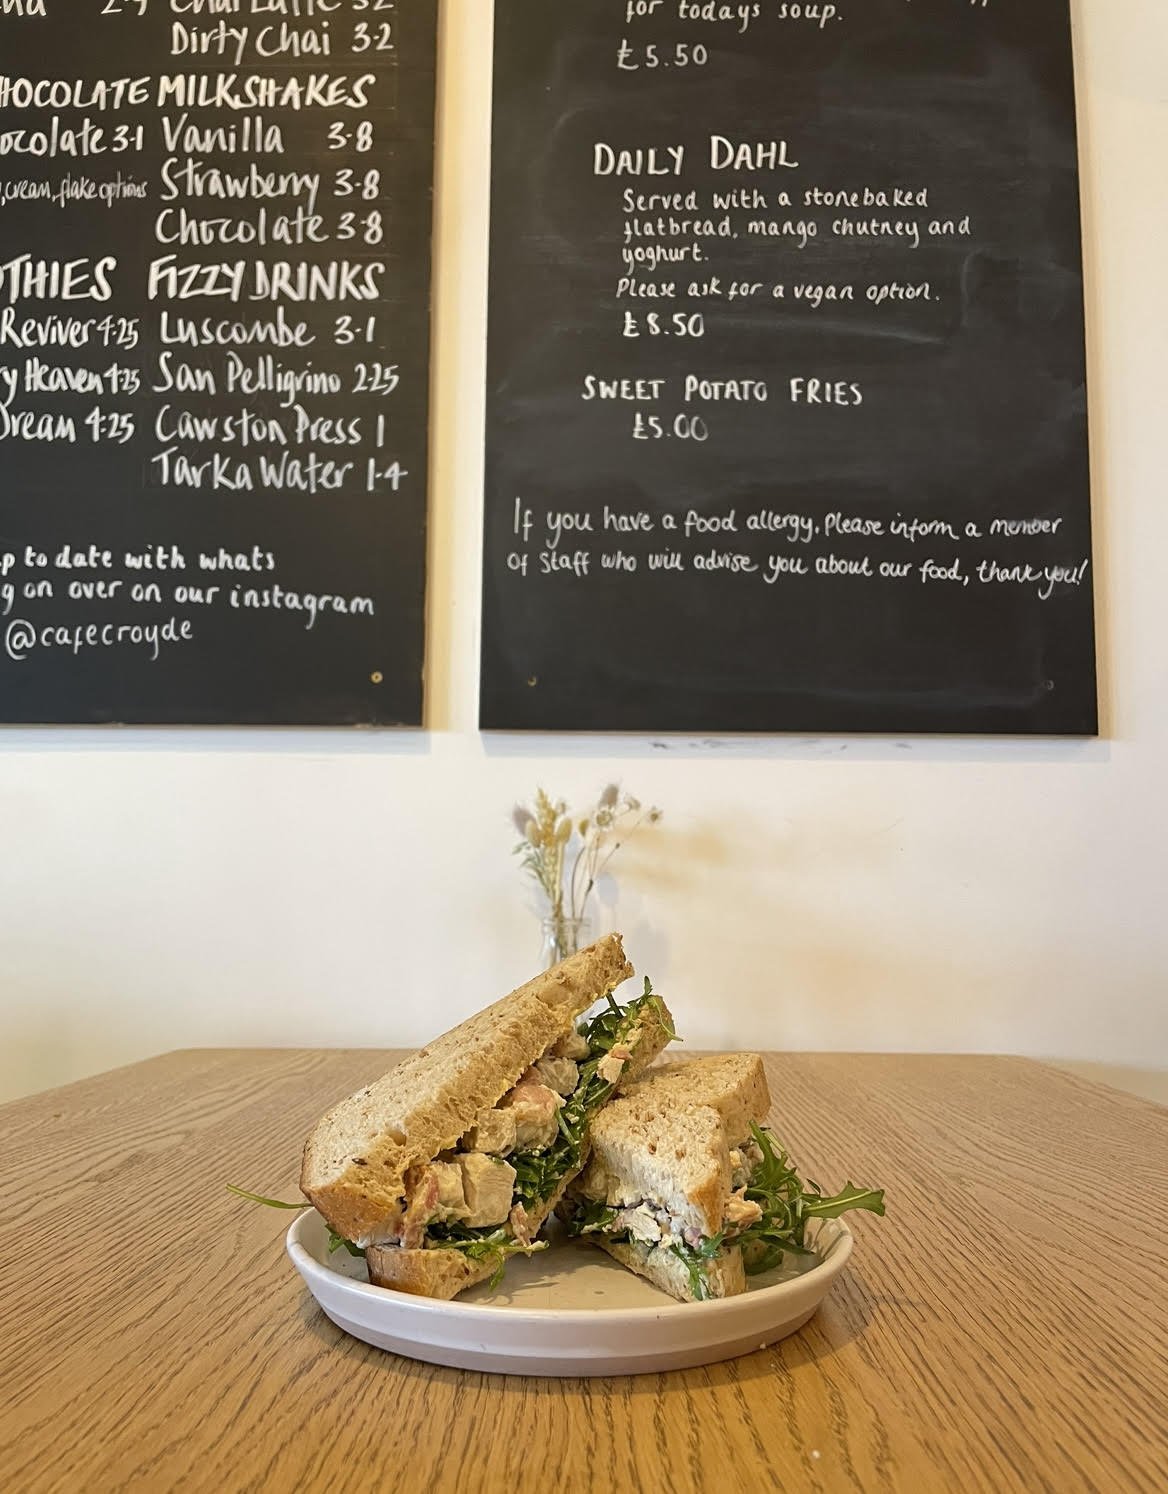 Chai Latte 3·2
Dirty Chai 3·2
HOCOLATE
ocolate 3·1
, cream, flake options
MILKSHAKES
Vanilla 3·8
Strawberry 3·8
Chocolate 3·8
OTHIES
Reviver 4·25
y Heaven 4·25
Dream 4·25
FIZZY DRINKS
Luscombe 3·1
San Pelligrino 2·25
Cawston Press 1
Tarka Water 1·4
p to date with whats
g on over on our instagram
@cafecroyde
for todays soup.
£5.50
DAILY DAHL
Served with a stonebaked
flatbread, mango chutney and
yoghurt.
Please ask for a vegan option.
£8.50
SWEET POTATO FRIES
£5.00
If you have a food allergy, please inform a member
of staff who will advise you about our food, thank you!